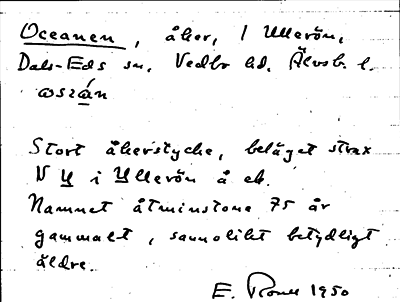 Oceanen, åker, / Ullerön,
Dals-Eds sn. Vedbo hd. Älvsb. l.
oszán
Stort åkerstycke, beläget strax
N y i Yllerön å ek.
Namnet åtminstone 75 år
gammalt, sannolikt betydligt
äldre.
E. 1950